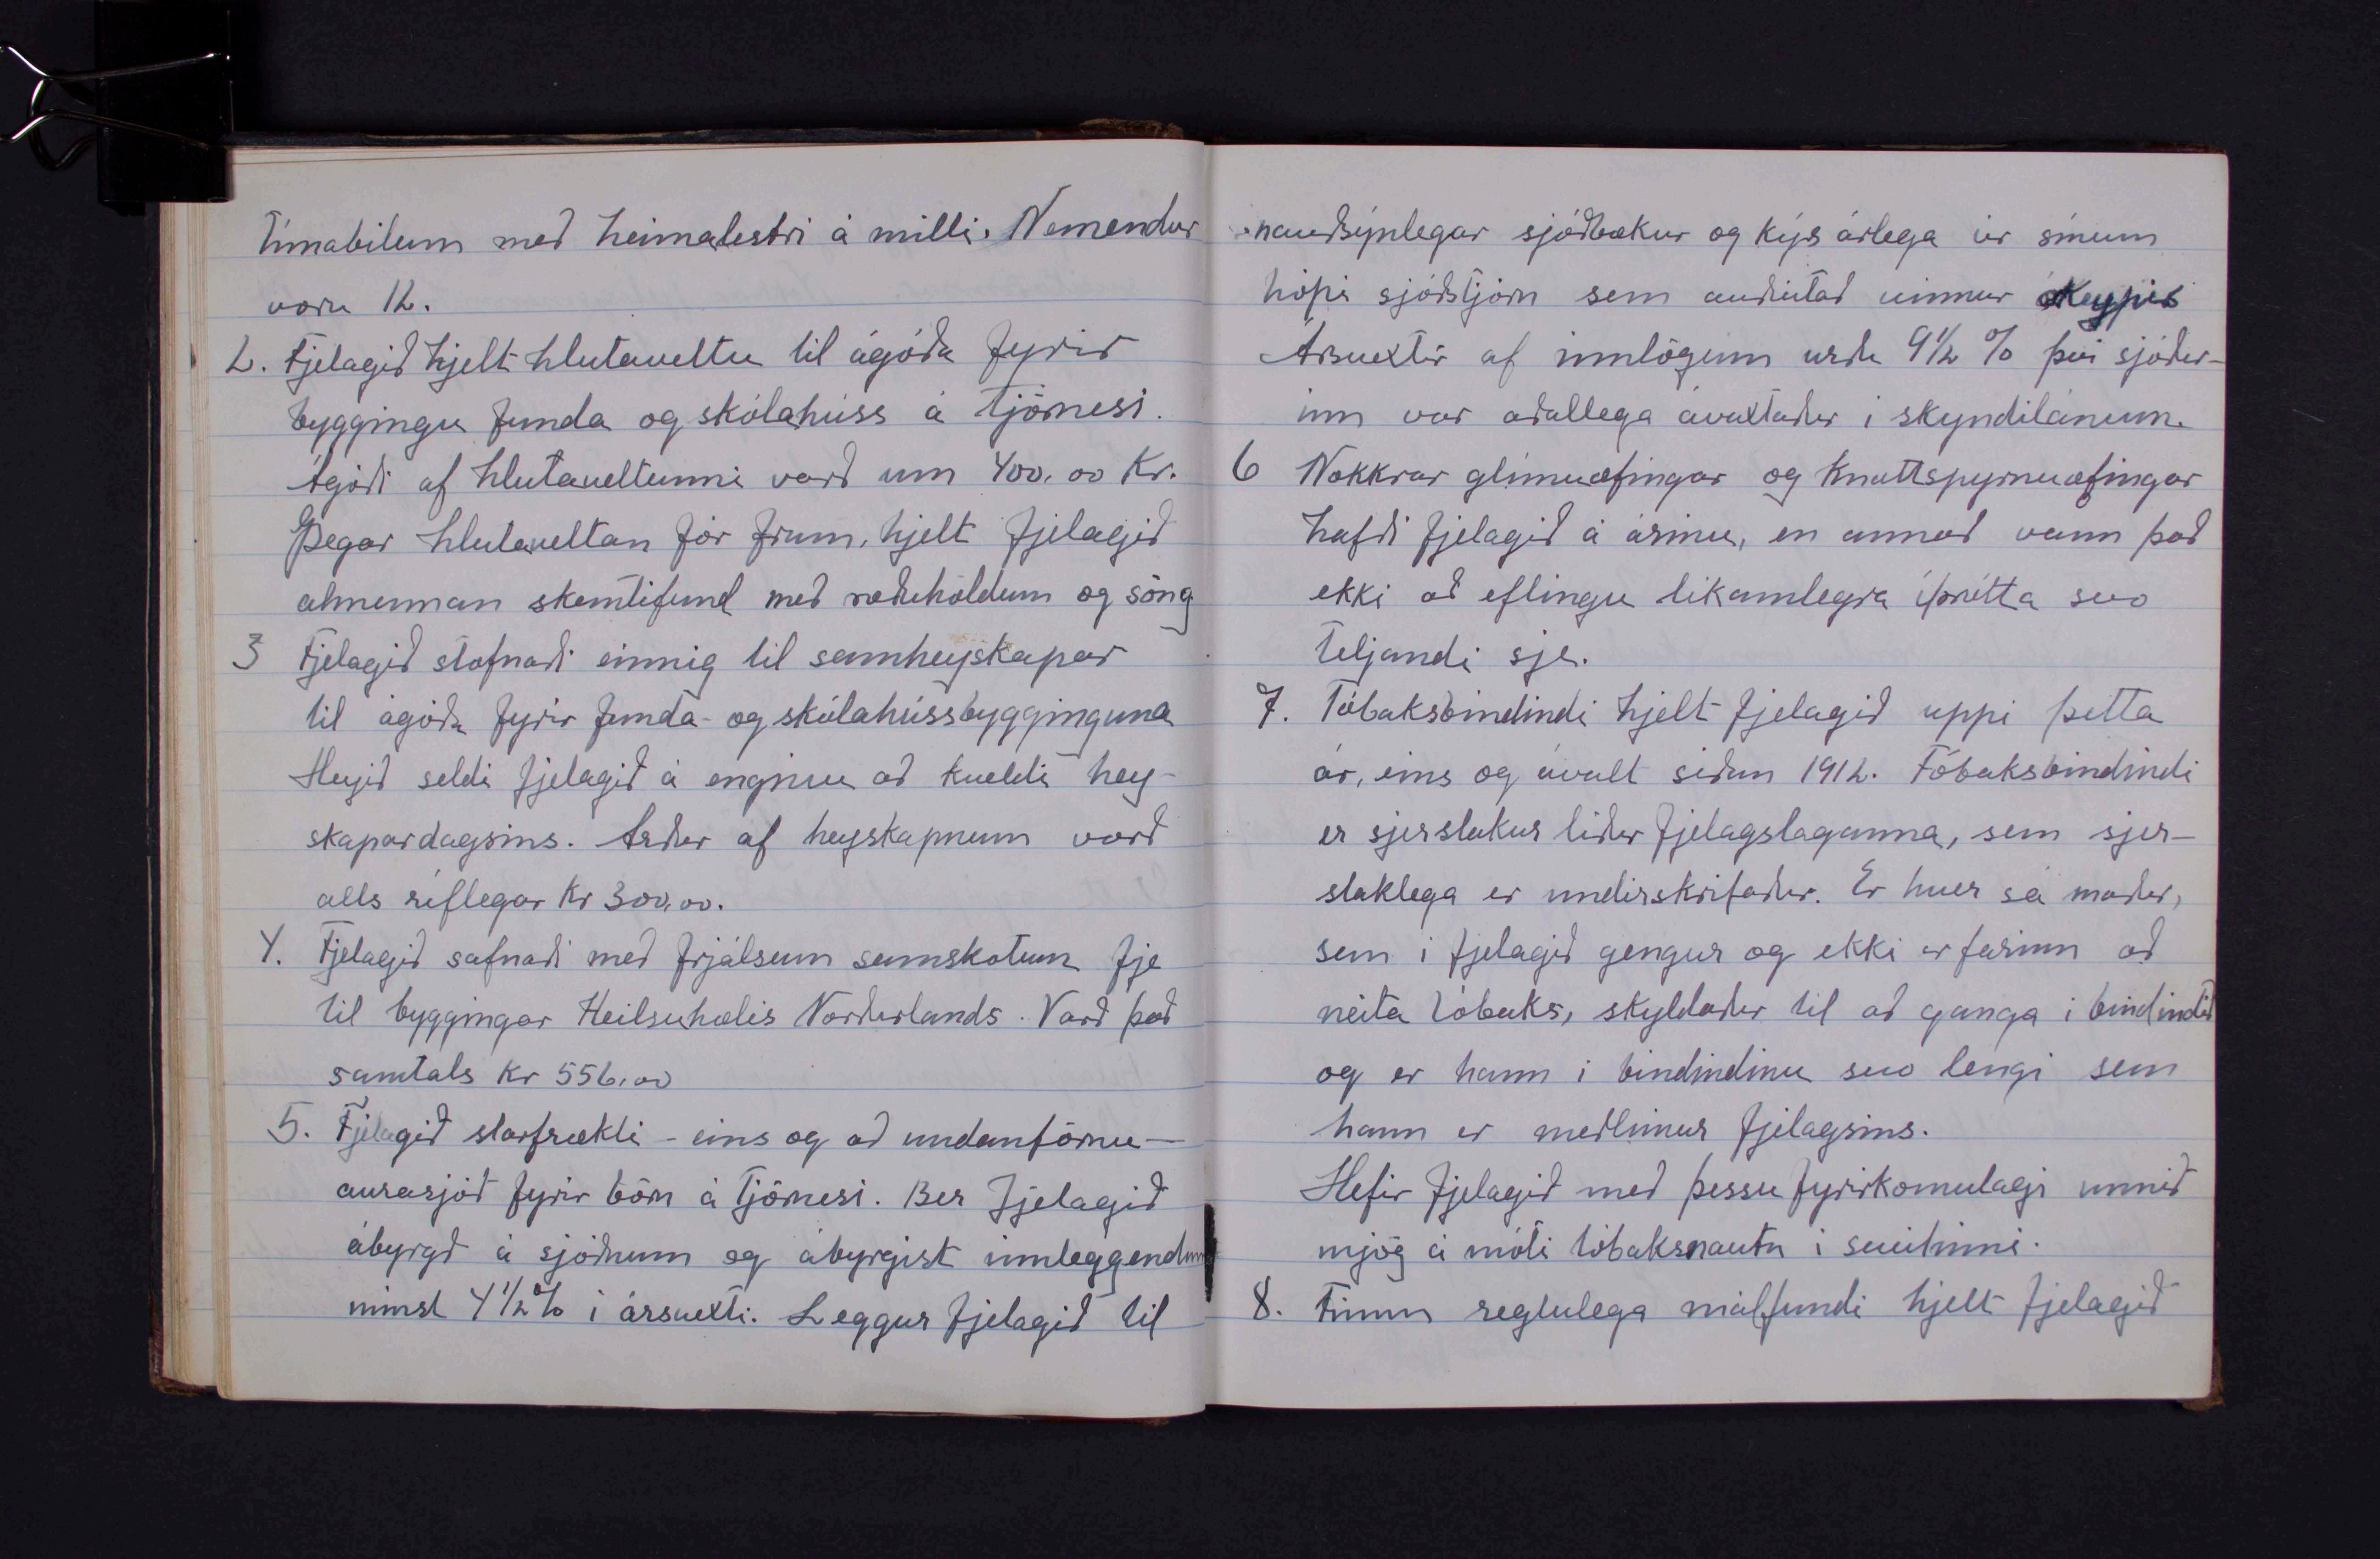 tímabilum með heimalestri á milli. Nemendur
voru 12.
2. Fjelagið hjelt hlutaveltu til ágóða fyrir
byggingu funda og skólahúss á Tjörnesi.
Ágóði af hlutaveltunni varð um 400,00 Kr.
Þegar hlutaveltan fór fram, hjelt fjelagið
almennan skemtifund með ræðuhöldum og söng
3 Fjelagið stofnaði einnig til samheyskapar
til ágóða fyrir funda- og skólahússbygginguna
Heyið seldi fjelagið á enginu að kveldi hey-
skapardagsins. Arður af heyskapnum varð
alls ríflegar kr 300,00.
4. Fjelagið safnaði með frjálsum samskotum fje
til byggingar Heilsuhælis Norðurlands. Varð það
samtals kr 556,00
5. Fjelagið starfrækti - eins og að undanförnu -
aurasjóð fyrir börn á Tjörnesi. Ber fjelagið
ábyrgð á sjóðnum og ábyrgist innleggendum
minst 4 1/2 % í ársvexti. Leggur fjelagið til
nauðsýnlegar sjóðbækur og kýs árlega úr sínum
hópi sjóðstjórn sem auðvitað vinnur ókeypis
Ársvextir af innlögum urðu 9 1/2 % því sjóður-
inn var aðallega ávaxtaður í skyndilánum.
6 Nokkrar glímuæfingar og knattspyrnuæfingar
hafði fjelagið á árinu, en annað vann það
ekki að eflingu líkamlegra íþrótta svo
teljandi sje.
7. Tóbaksbindindi hjelt fjelagið uppi þetta
ár, eins og ávalt síðan 1912. Tóbaksbindindi
er sjerstakur liður fjelagslaganna, sem sjer-
staklega er undirskrifaður. Er hver sá maður,
sem í fjelagið gengur og ekki er farinn að
neita tóbaks, skyldaður til að ganga í bindindið
og er hann í bindindinu svo lengi sem
hann er meðlimur fjelagsins.
Hefir fjelagið með þessu fyrirkomulagi unnið
mjög á móti tóbaksnautn í sveitinni.
8. Fimm reglulega málfundi hjelt fjelagið